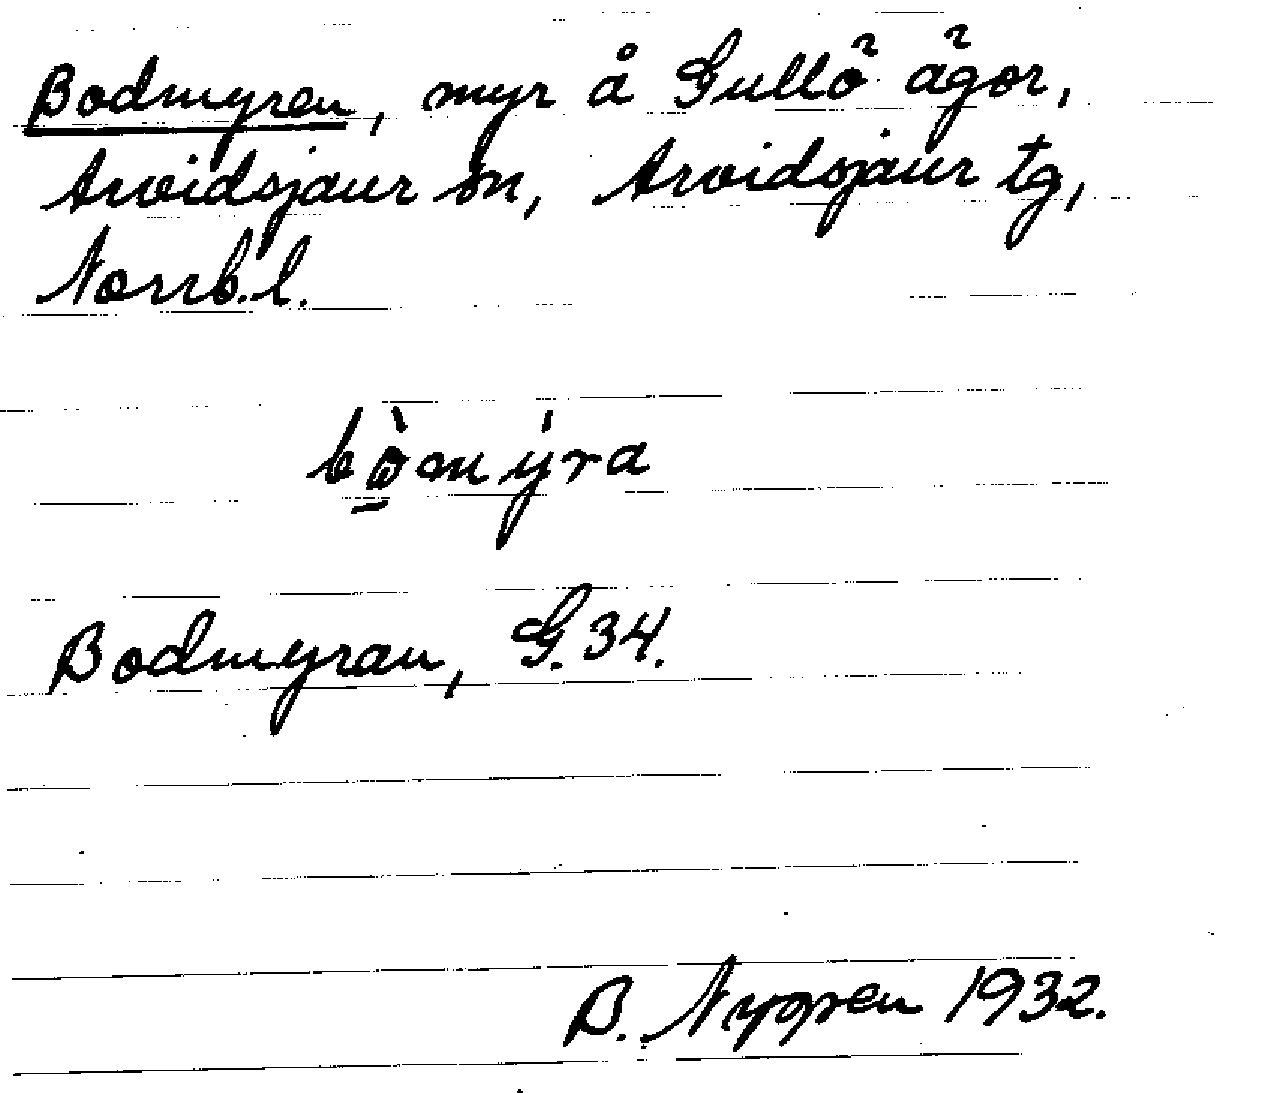 Bodmyren, myr å Gullö ägor,
Arvidsjaur sn, Arvidsjaur tg,
Norrb. l.
bò̱mýra
Bodmyran, G. 34.
B. Nygren 1932.